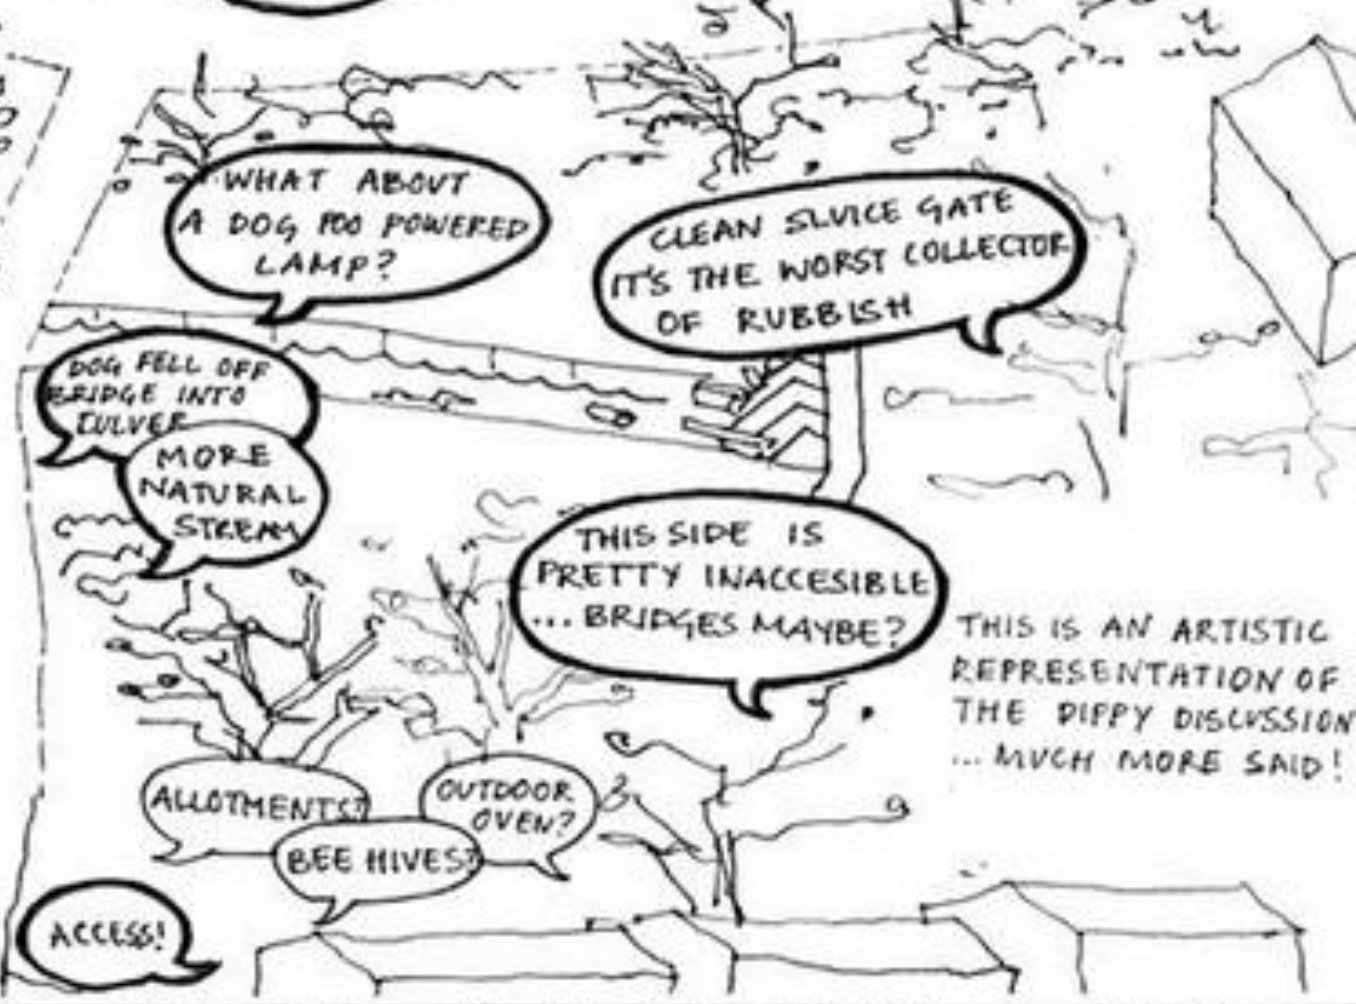 WHAT ABOUT
A DOG POO POWERED
LAMP?
CLEAN SLUICE GATE
IT'S THE WORST COLLECTOR
OF RUBBISH
DOG FELL OFF
BRIDGE INTO
CULVER
MORE
NATURAL
STREAM
THIS SIDE IS
PRETTY INACCESIBLE
... BRIDGES MAYBE?
THIS IS AN ARTISTIC
REPRESENTATION OF
THE DIPPY DISCUSSION
... MUCH MORE SAID!
ALLOTMENTS?
OUTDOOR
OVEN?
BEE HIVES?
ACCESS!